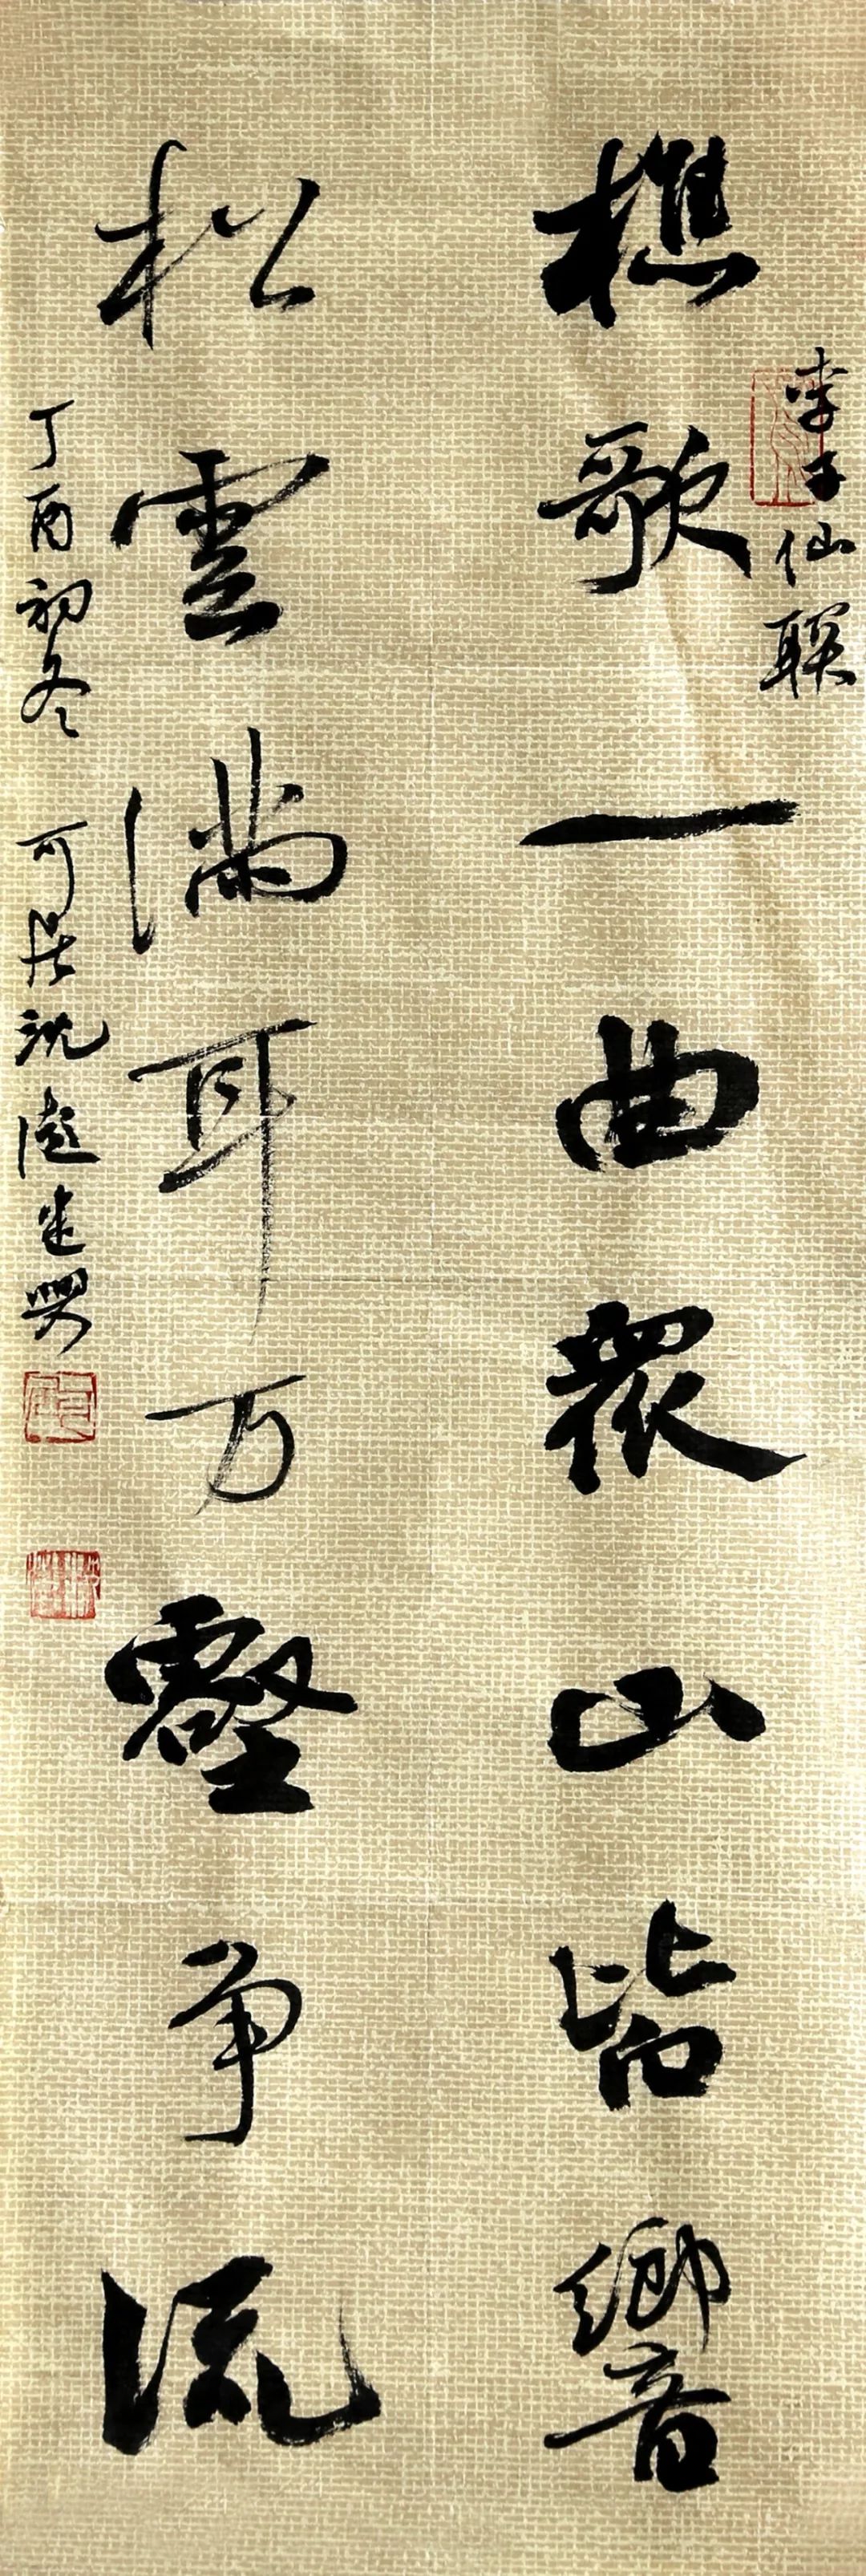 李子仙联
樵歌一曲眾山皆響
松雲满耳万壑争流
丁酉初冬 可居沈